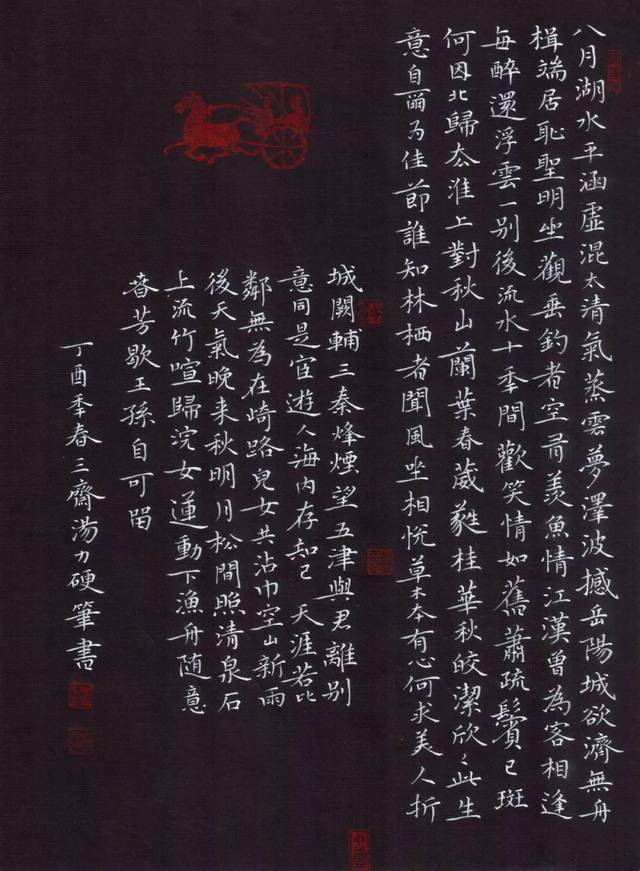 八月湖水平涵虛混太清氣蒸雲夢澤波撼岳陽城欲濟無舟
楫端居恥聖明坐觀垂釣者空有羨魚情江漢曾為客相逢
每醉還浮雲一別後流水十年間歡笑情如舊蕭疏鬢已斑
何因北歸去淮上對秋山蘭葉春葳蕤桂華秋皎潔欣〻此生
意自爾為佳節誰知林栖者聞風坐相悅草木本有心何求美人折
城闕輔三秦烽煙望五津與君離別
意同是宦遊人海內存知己天涯若比
鄰無為在崎路兒女共沾巾空山新雨
後天氣晚来秋明月松間照清泉石
上流竹喧歸浣女蓮動下漁舟随意
春芳歇王孫自可留
丁酉年春三齋湯力硬筆書